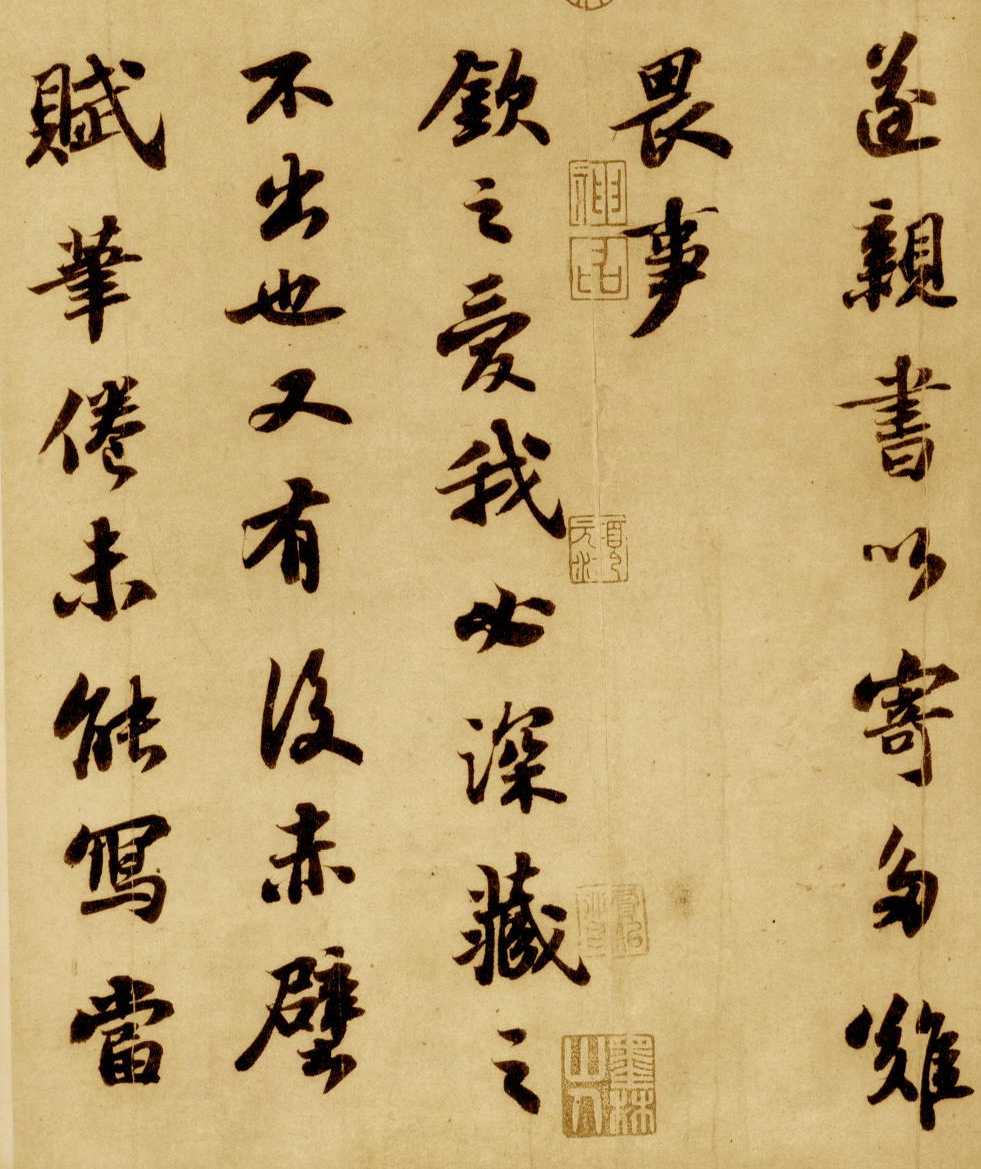 遂親書以寄多難
畏事
欽之愛我必深藏之
不出也又有後赤壁
賦筆倦未能寫當
神品
墨林山人